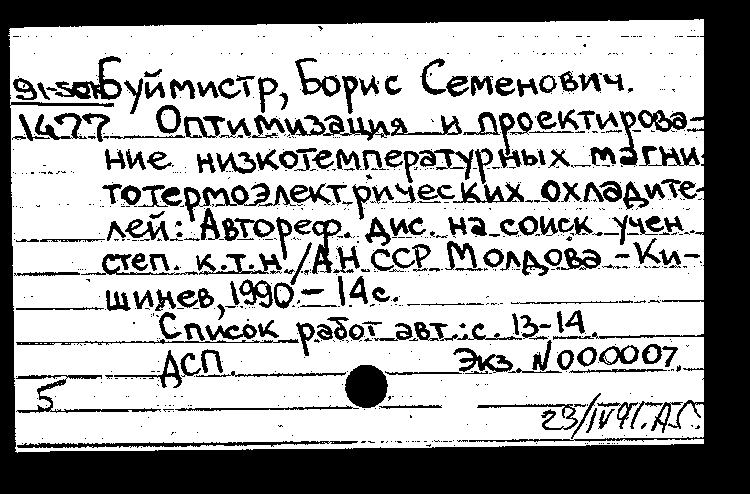 Буймистр, Борис Семенович.
1477 Оптимизация и проектирова-
ние низкотемпературных магни
тотермоэлектрических охладите-
лей: Автореф. дис. на соиск. учен
степ. к.т.н. /АН ССР Молдова -Ки-
шинев, 1990. - 14 с.
Список работ авт.: с. 13-14.
ДСП. Экз. N 000007.
5
23/IV 91. А.С.